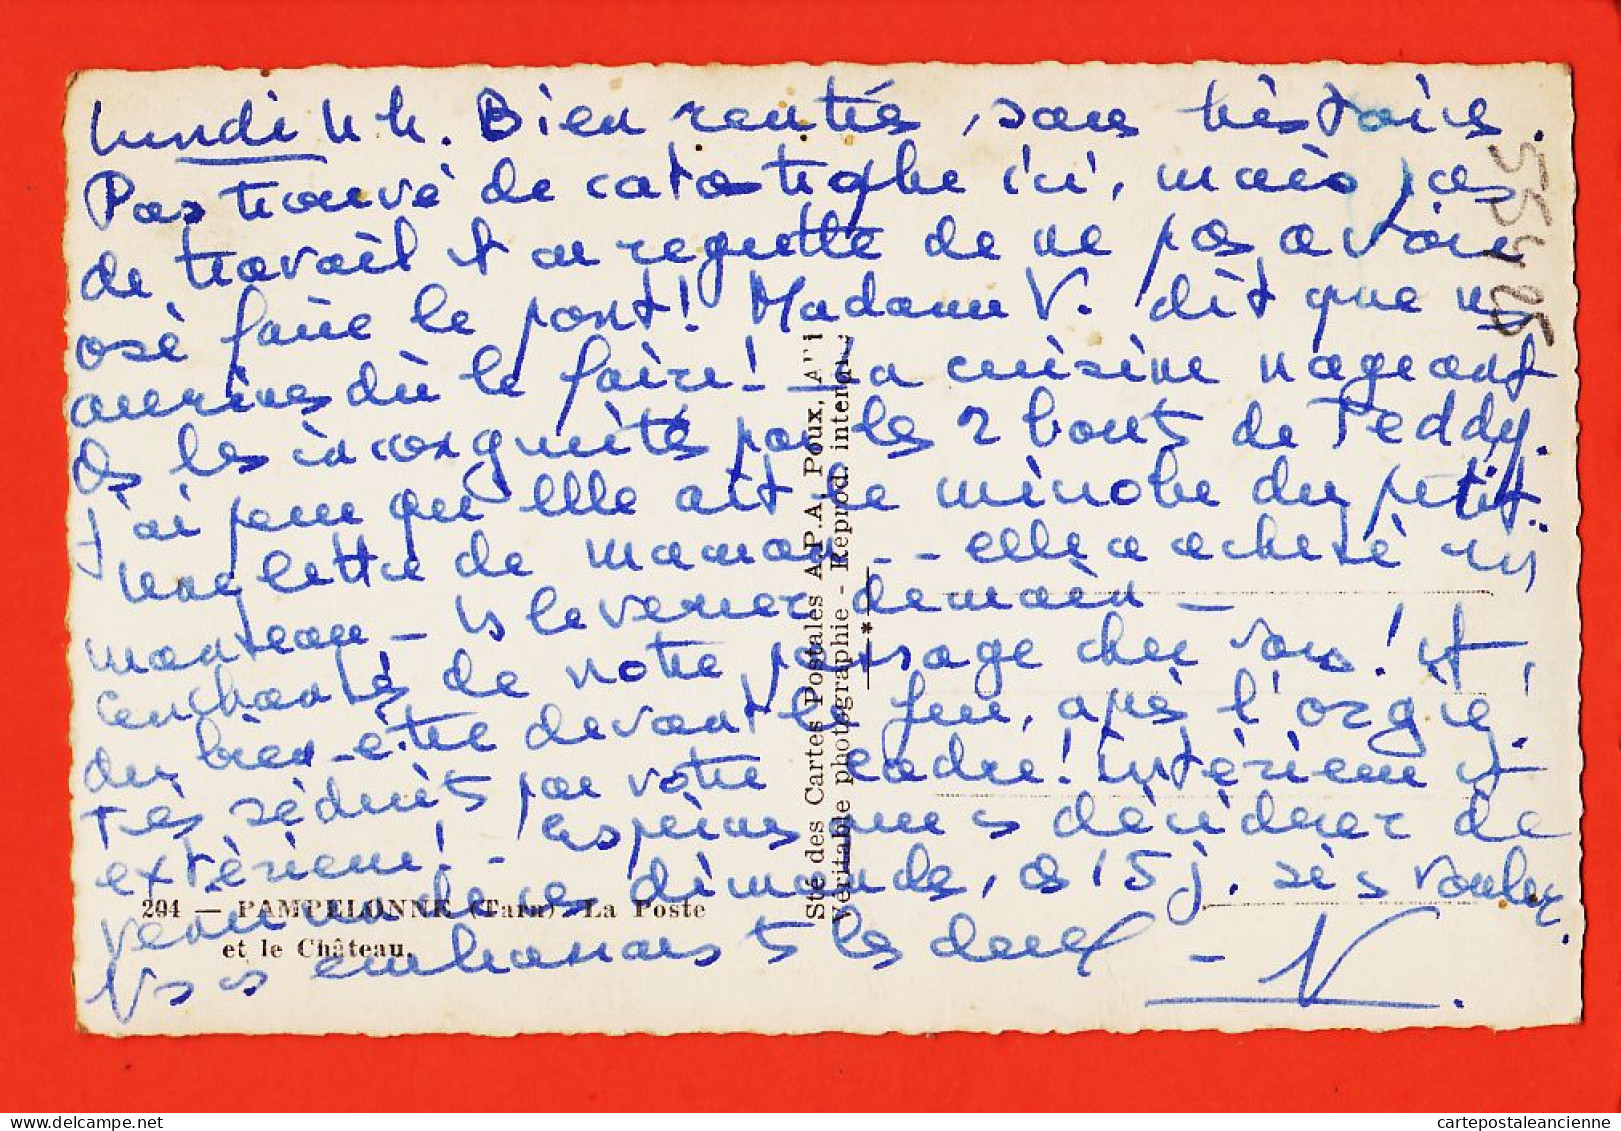 lundi 4 h. Bien rentrés, sans histoires.
Pas trouvé de catastrophe ici, mais pas
de travail et on regrette de ne pas avoir
osé faire le pont! Madame V. dit que ns
aurions dû le faire! La cuisine nageant
ds les incongruités par les 2 bouts de Teddy.
J'ai peur qu'elle ait le microbe du petit.
lettre de maman -- elle a acheté un
manteau - ns le verrez demain -
Enchantés de notre passage chez vous! et
du bien-être devant le feu, après l'orgie!
Très séduits par votre cadre! intérieur et
extérieur! - Espérons vs décider de
venir dimanche, ds 15 j. si vs voulez.
Ns vs embrassons ts les deux - N.
204 — PAMPELONNE (Tarn) La Poste
et le Château.
Sté des Cartes Postales A.P.A. Poux, Albi
Véritable photographie - Reprod. interdite
*
55425
cartepostaleancienne
www.delcampe.net